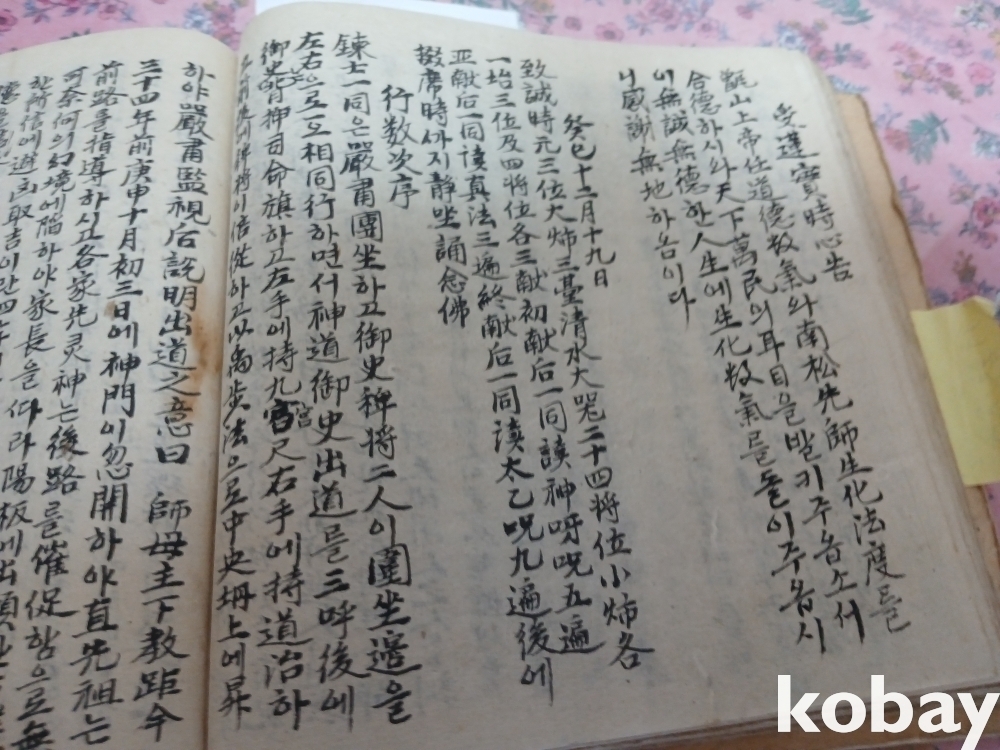 受蓮實時心告
甑山上帝任道德敎氣와南松先師生化法度를
合德하시와天下萬民의耳目을발키주옵소서
이無誠無德한人生에生化敎氣를돌이주옵시
니感謝無地하옴이다
癸巳十二月十九日
致誠時元三位大炉三臺清水大咒二十四將位小炉各
一坮三位及四將位各三献初献后一同讀神呀呪五遍
亚献后一同读真法三遍終献后一同讀太乙呪九遍後에
撤席時싸지静坐誦念佛
行数次序
鍊士一同은嚴肅團坐하고御史稗將二人이團坐邉을
左右으로一도相同行하면서神道御史出道를三呼後에
御史背押司命旗하고左手에持九宮尺右手에持道治하
以禹步法으로中央坍上에昇
하야嚴肅監視后說明出道之意曰 師母主下教距今
三十四年前庚申十月初三日에神門이忽開하야直先祖는
前路를指導하시고各家先灵神는後路를催促함으로無
可奈何의幻境에陷하야家長을따라陽板에出頭
kobay